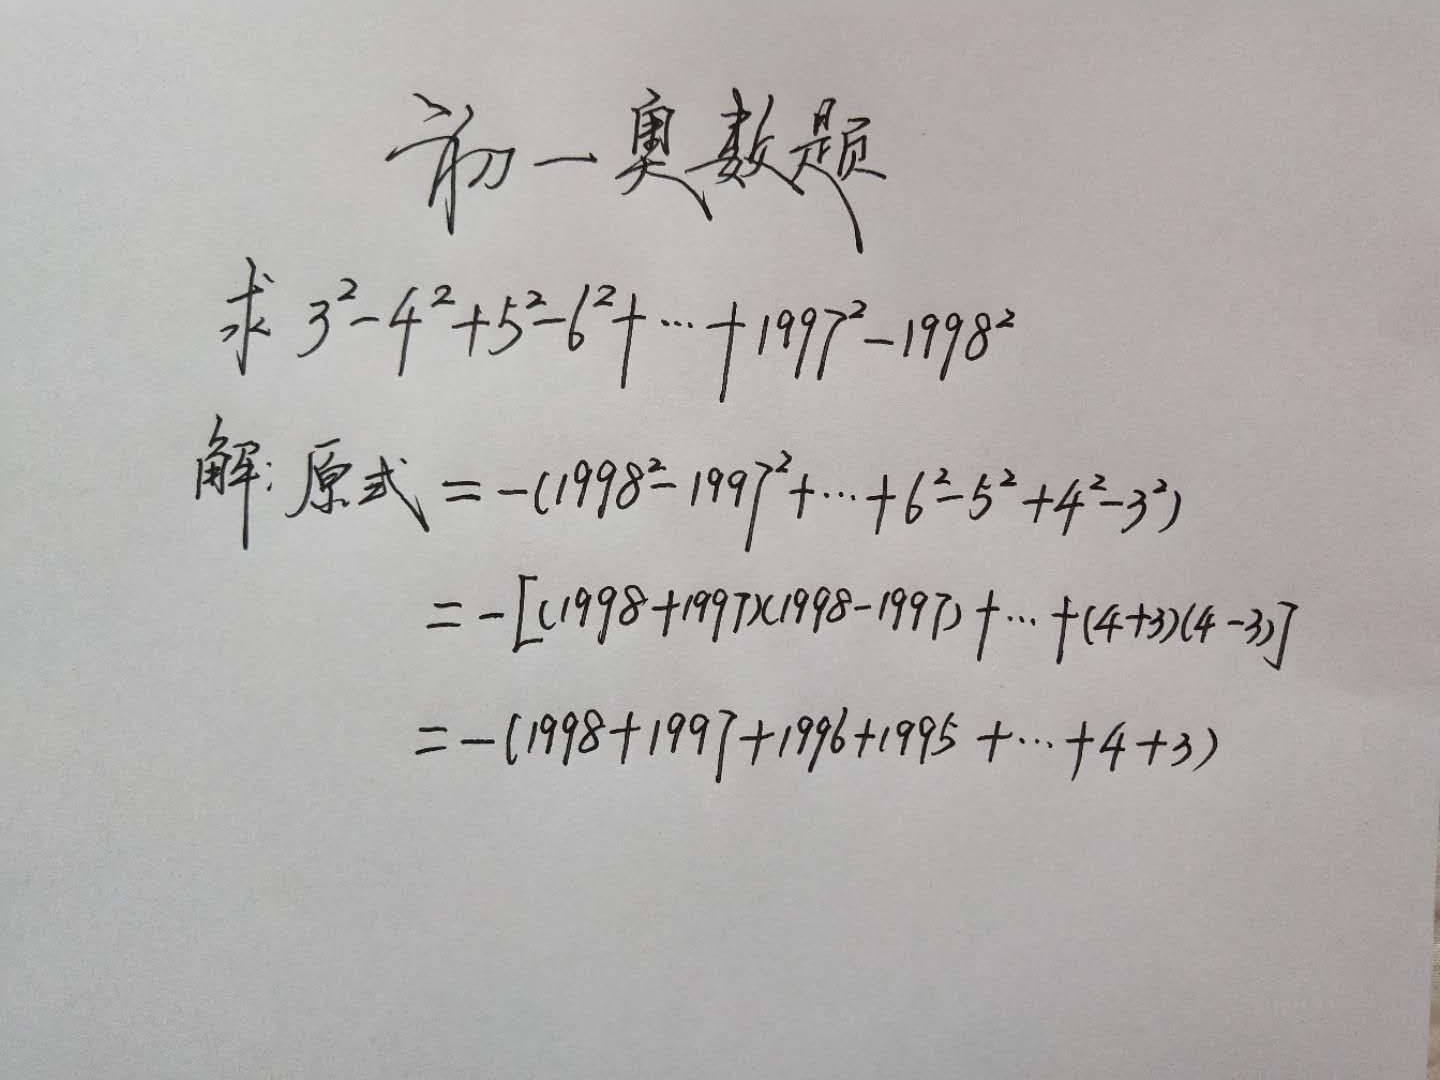 初一奥数题
求 3²-4²+5²-6²+…+1997²-1998²
解:原式=-(1998²-1997²+…+6²-5²+4²-3²)
=-[(1998+1997)(1998-1997)+…+(4+3)(4-3)]
=-(1998+1997+1996+1995+…+4+3)